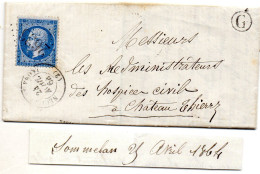 G
Messieurs
les Administrateurs
des hospices civils
à Château Thierry
Sommelan 25 Avril 1864